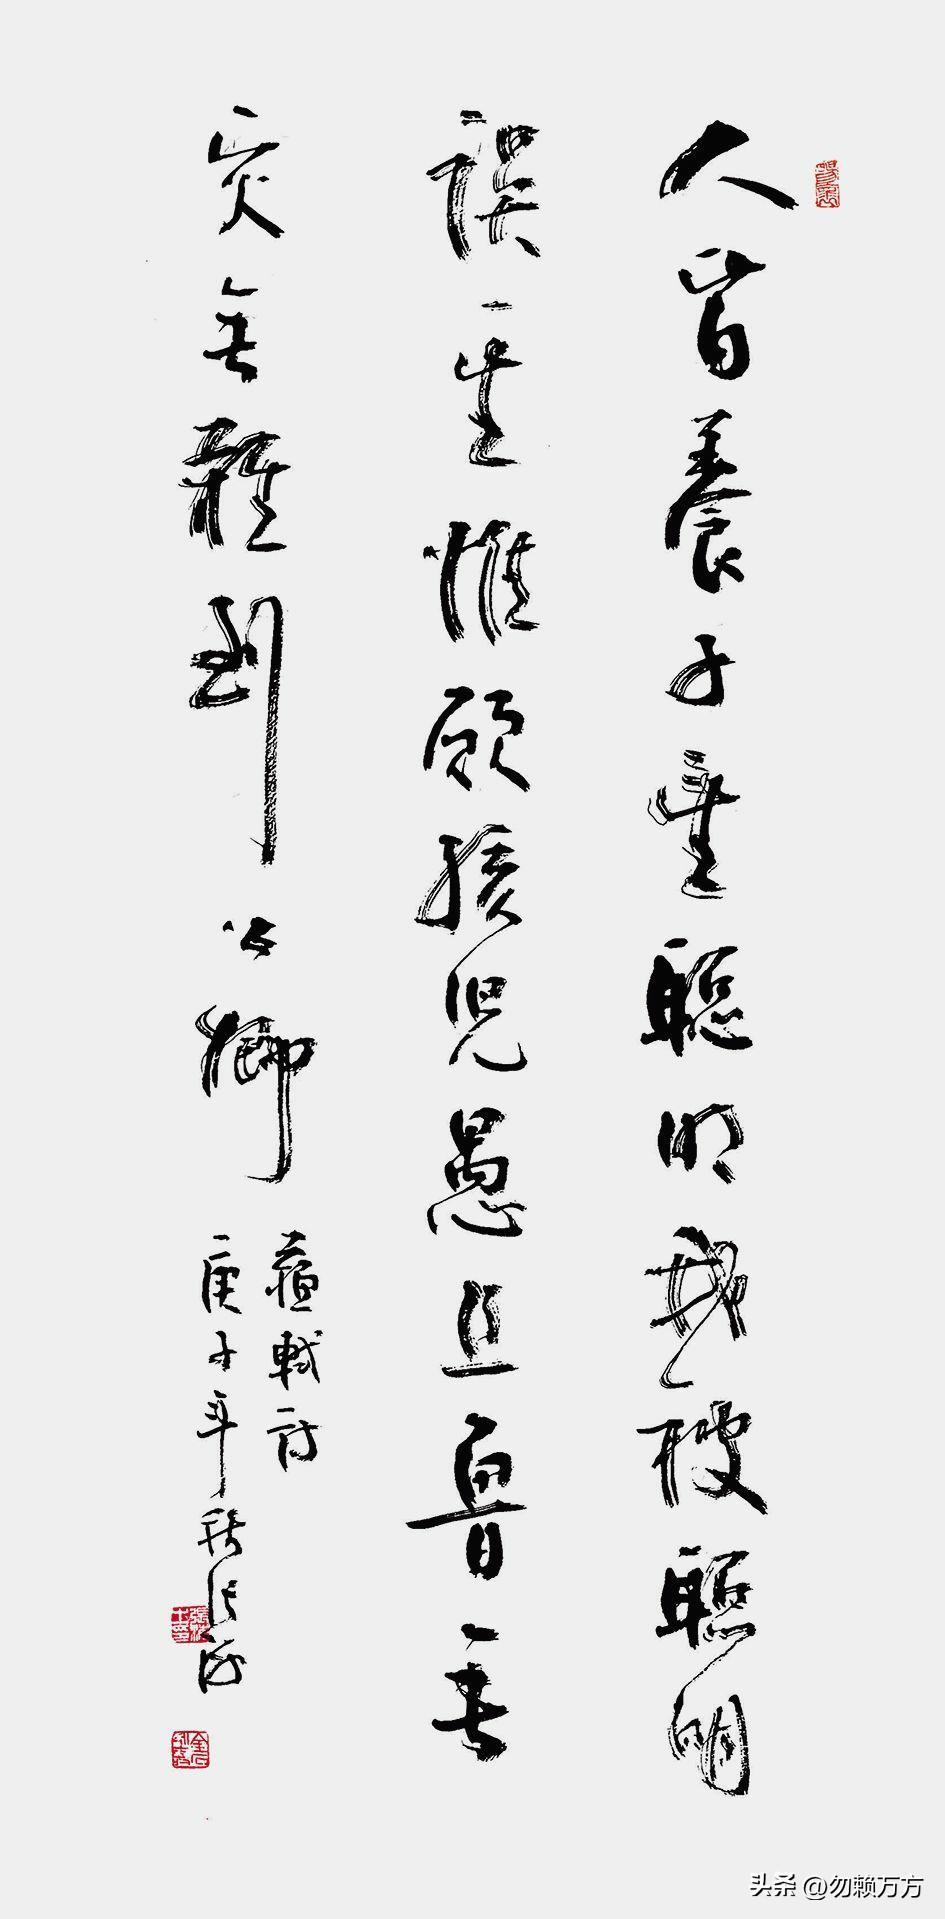 人皆養子望聰明我被聰明
誤一生惟願孩兒愚且魯無
災無難到公卿
蘇軾詩
庚子年秋張
头条 @勿赖万方